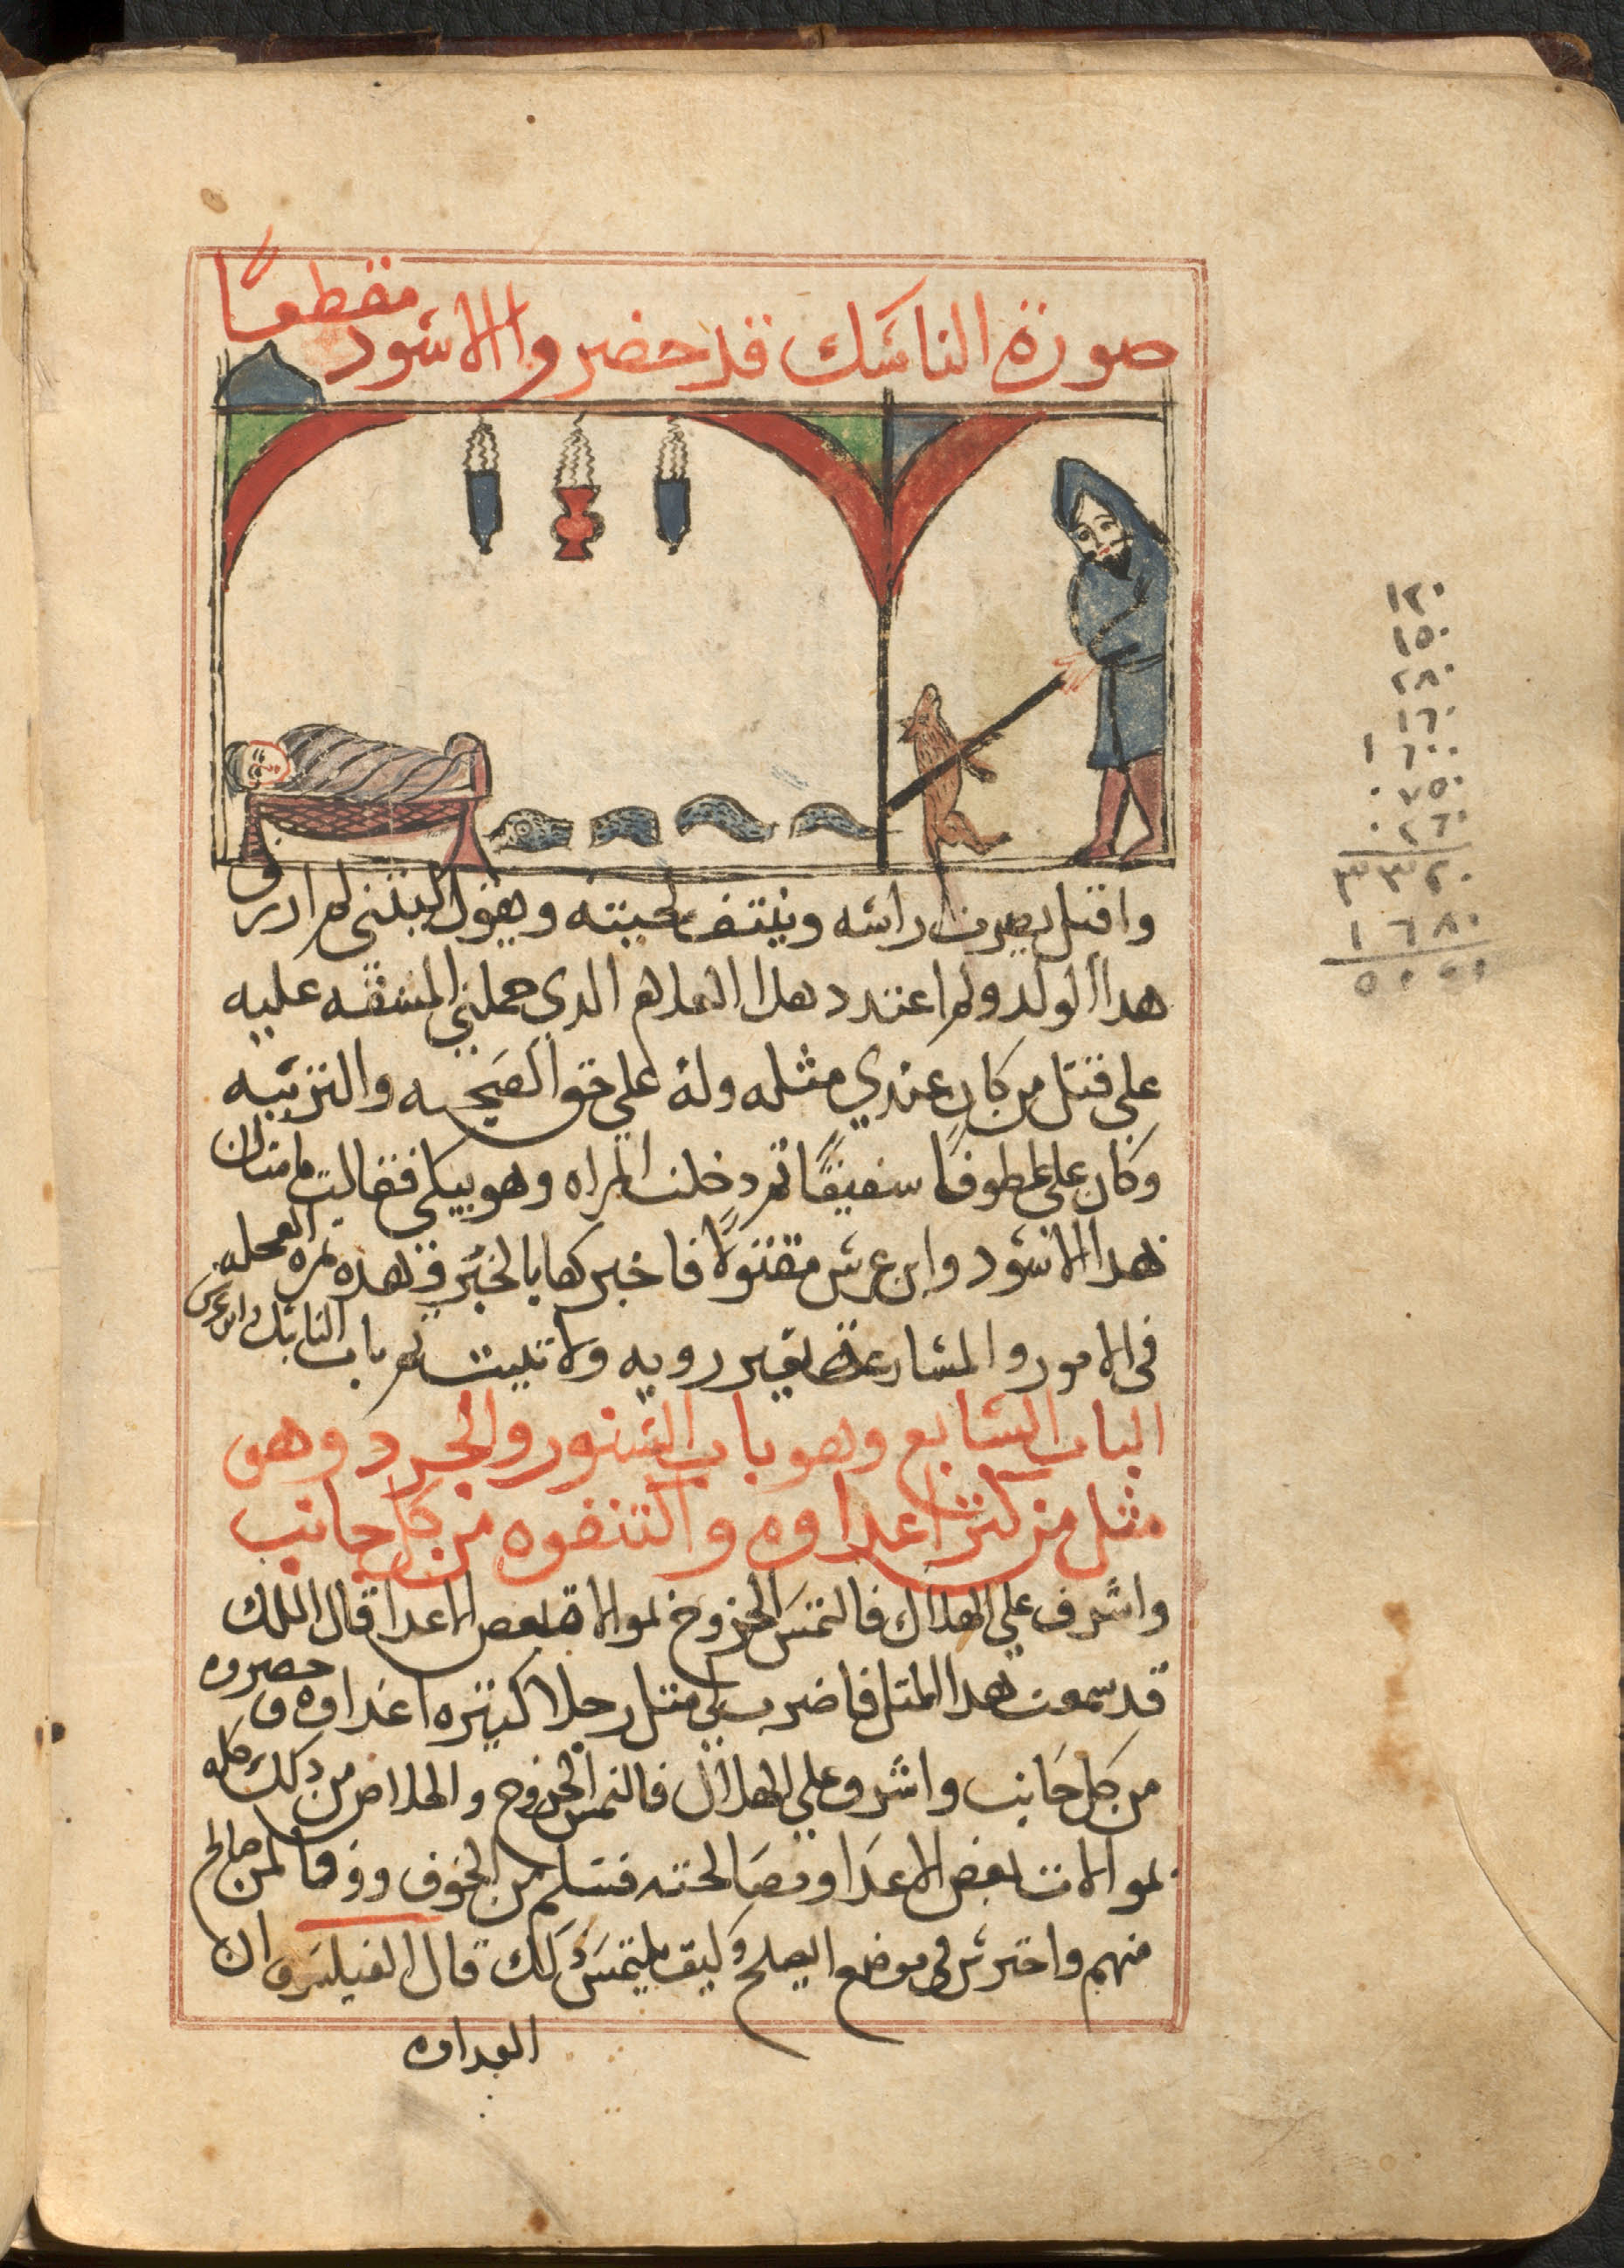 صورة الناسك قد حضر والاسود مقطعًا
واقبل يضرب راسه وينتف لحيته ويقول ليتني لم ارزق
هدا الولد ولم اعتدد هدا الدي حملني المشقه عليه
على قتل من كان عندي مثله وله على حق الصحبه والتربيه
وكان على عطوفًا شفيقًا ثم دخلت المراه وهو يبكي فقالت ما شان
هدا الاسود وابن عرس مقتولًا فاخبرها بالخبر وقال هده ثمره العجله
في الامور والمسارعة بغير رويه ولا تثبت تم باب الناسك وابن عرس
الباب السابع وهو باب السنور والجرد وهو
مثل من كثر اعداوه والتنفوه من كل جانب
واشرف على الهلاك فالتمس الخروج بموالاة بعض الاعدا قال الملك
قد سمعت هدا المثل فاضرب لي مثل رجلا كثيره اعداوه وحصروه
من كل جانب واشرف على الهلاك فالتمس الخروج والخلاص من دلك كله
بموالات بعض الاعدا ومصالحته فسلم من الخوف ووفا لمن صالح
منهم واحترس في موضع الصلح وكيف يلتمس دلك قال الفيلسوف ان
العداوه
١٢٠
١٥٠
٢٨٠
١٦٠
١٦٠٠
٠٧٥٠
٠٢٦٠
٣٣٢٠
١٦٨٠